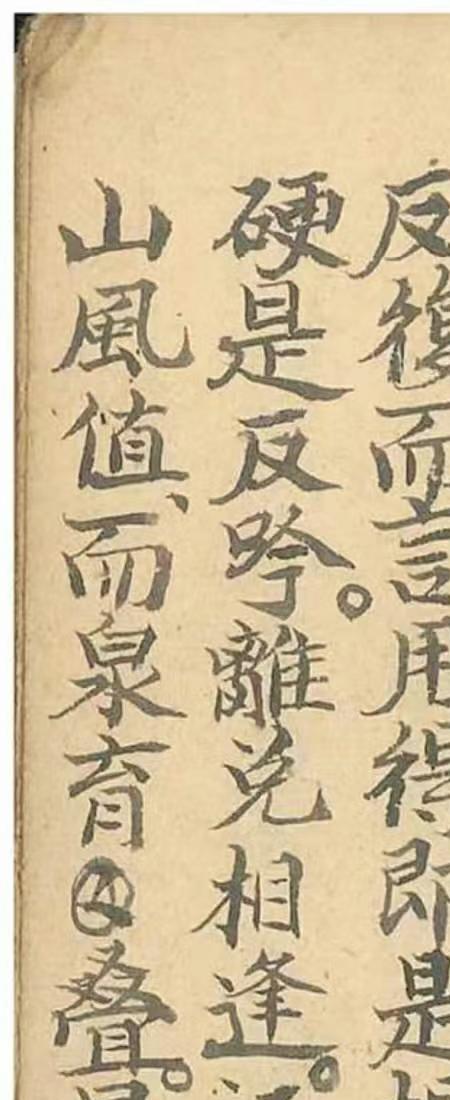 反復而言用得即是
硬是反吟。離兌相逢。
山風值、而泉育叠。